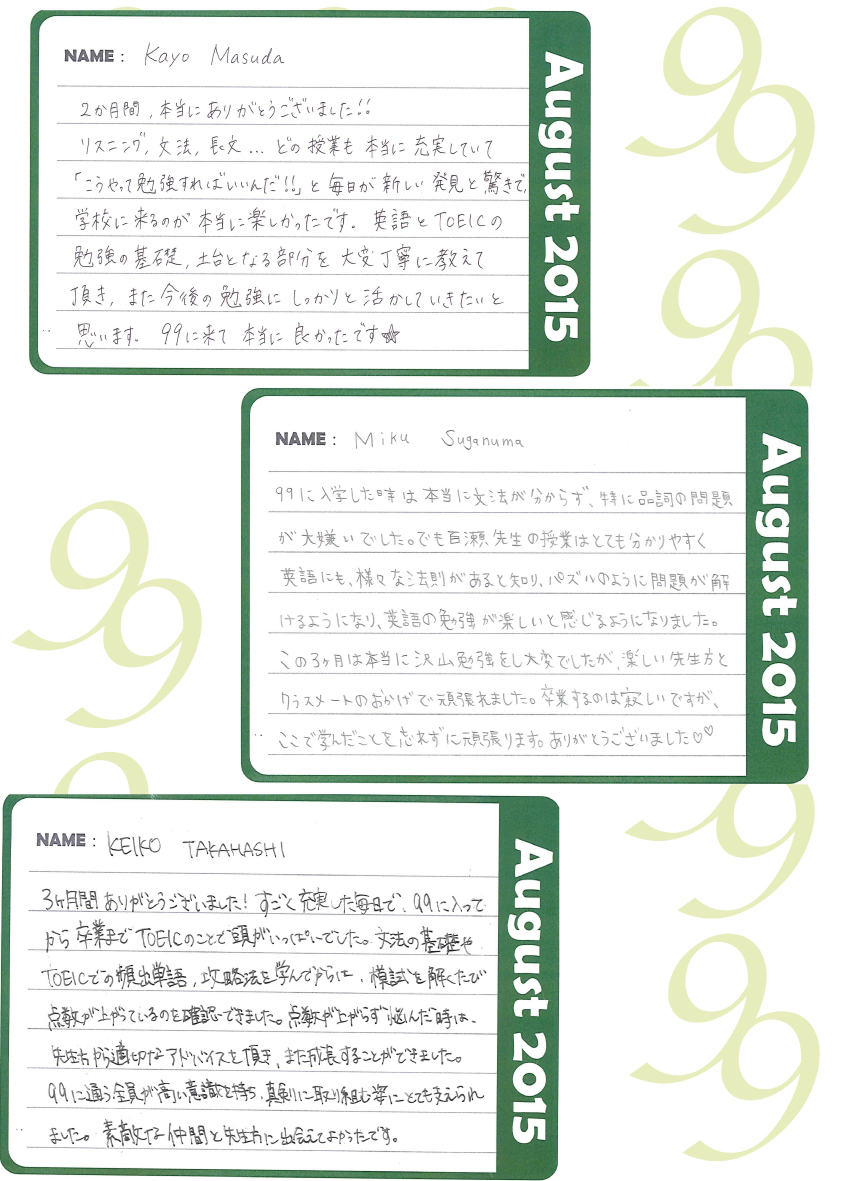 NAME : Kayo Masuda
2か月間，本当にありがとうございました!!
リスニング，文法，長文…どの授業も本当に充実していて
「こうやって勉強すればいいんだ!!」と毎日が新しい発見と驚きで，
学校に来るのが本当に楽しかったです。英語とTOEICの
勉強の基礎，土台となる部分を大変丁寧に教えて
頂き，また今後の勉強にしっかりと活かしていきたいと
思います。99に来て本当に良かったです☆
August 2015
NAME : Miku Suganuma
99に入学した時は本当に文法が分からず、特に品詞の問題
が大嫌いでした。でも百瀬先生の授業はとても分かりやすく
英語にも、様々な法則があると知り、パズルのように問題が解
けるようになり、英語の勉強が楽しいと感じるようになりました。
この3ヶ月は本当に沢山勉強をし大変でしたが、楽しい先生方と
クラスメートのおかげで頑張れました。卒業するのは寂しいですが、
ここで学んだことを忘れずに頑張ります。ありがとうございました♡♡
August 2015
NAME : KEIKO TAKAHASHI
3ヶ月間ありがとうございました！すごく充実した毎日で、99に入って
から卒業までTOEICのことで頭がいっぱいでした。文法の基礎や
TOEICでの頻出単語，攻略法を学んでからは、模試を解くたび
点数が上がっているのを確認できました。点数が上がらず悩んだ時は、
先生方から適切なアドバイスを頂き、また成長することができました。
99に通う全員が高い意識を持ち、真剣に取り組む姿にとても支えられ
ました。素敵な仲間と先生方に出会えてよかったです。
August 2015
99
99
99
99
99
99